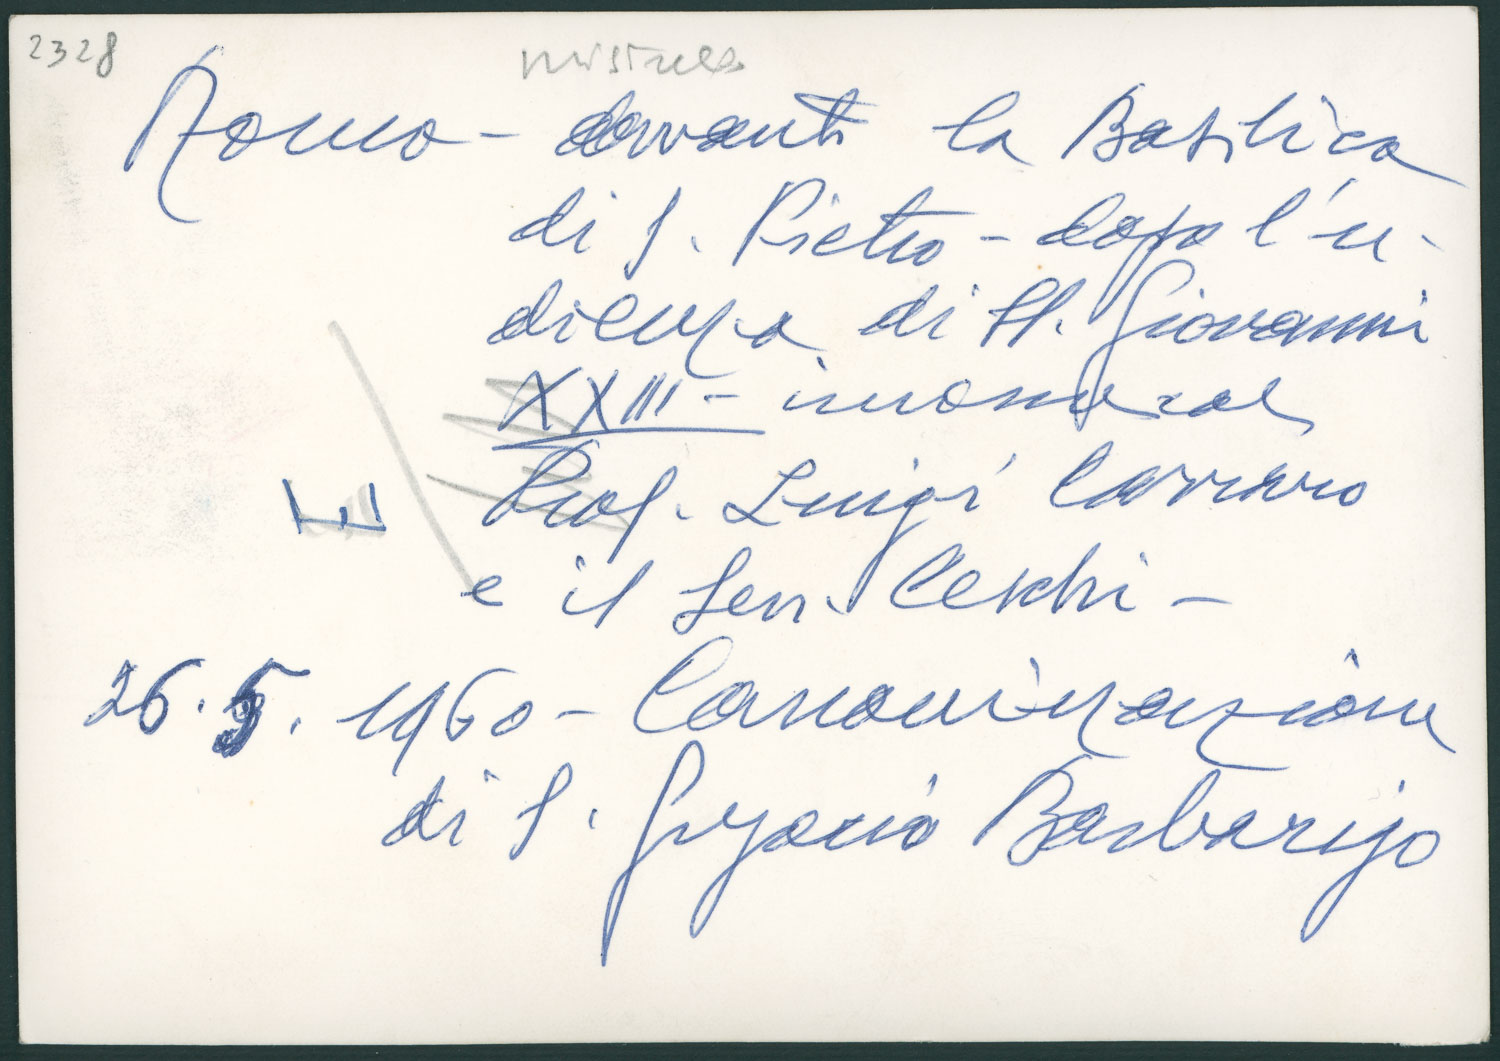 2328
Roma - davanti la Basilica
di S. Pietro - dopo l'u-
dienza di SS. Giovanni
XXIII -
Prof. Luigi Carraro
e il Sen. Ceschi -
26.5.1960 - Canonizzazione
di S. Gregorio Barbarigo